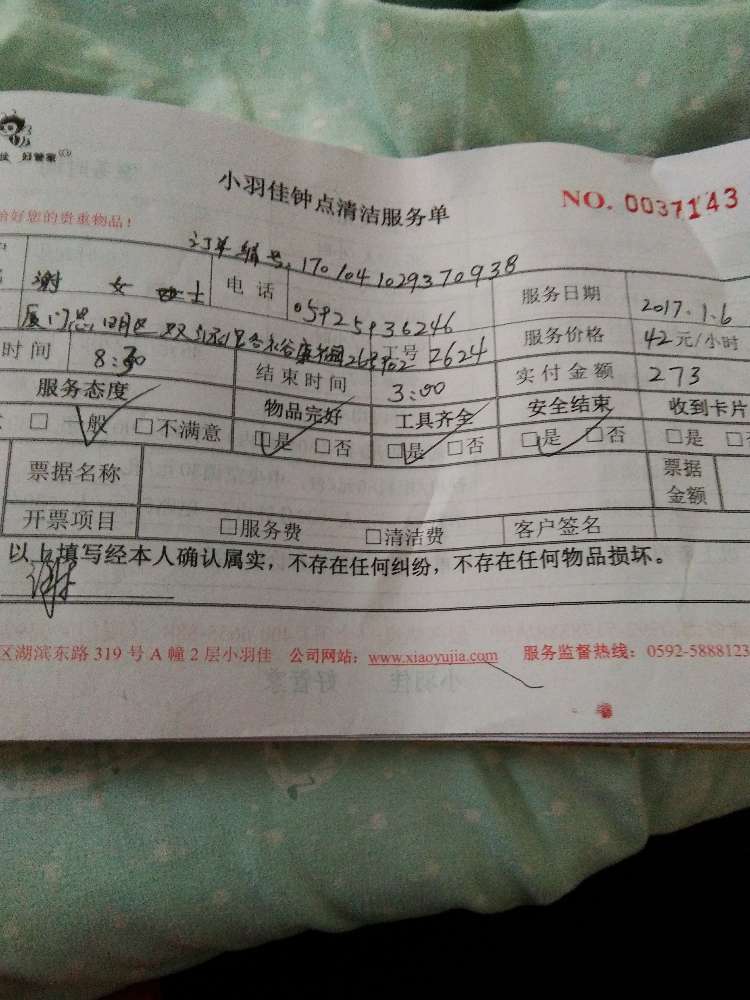 好管家
小羽佳钟点清洁服务单
NO. 0037143
好您的贵重物品！
订单编号：1701041029370938
谢 女士 电话 05925936246 服务日期 2017.1.6
厦门思明区 工号 2624 服务价格 42元/小时
时间 8:30 结束时间 3:00 实付金额 273
服务态度 物品完好 工具齐全 安全结束 收到卡片
□ 般 □不满意 □是 □否 □是 □否 □是 □否 □是 □
票据名称 票据金额
开票项目 □服务费 □清洁费 客户签名
以上填写经本人确认属实，不存在任何纠纷，不存在任何物品损坏。
区湖滨东路 319 号 A 幢 2 层小羽佳 公司网站：www.xiaoyujia.com 服务监督热线：0592-5888123